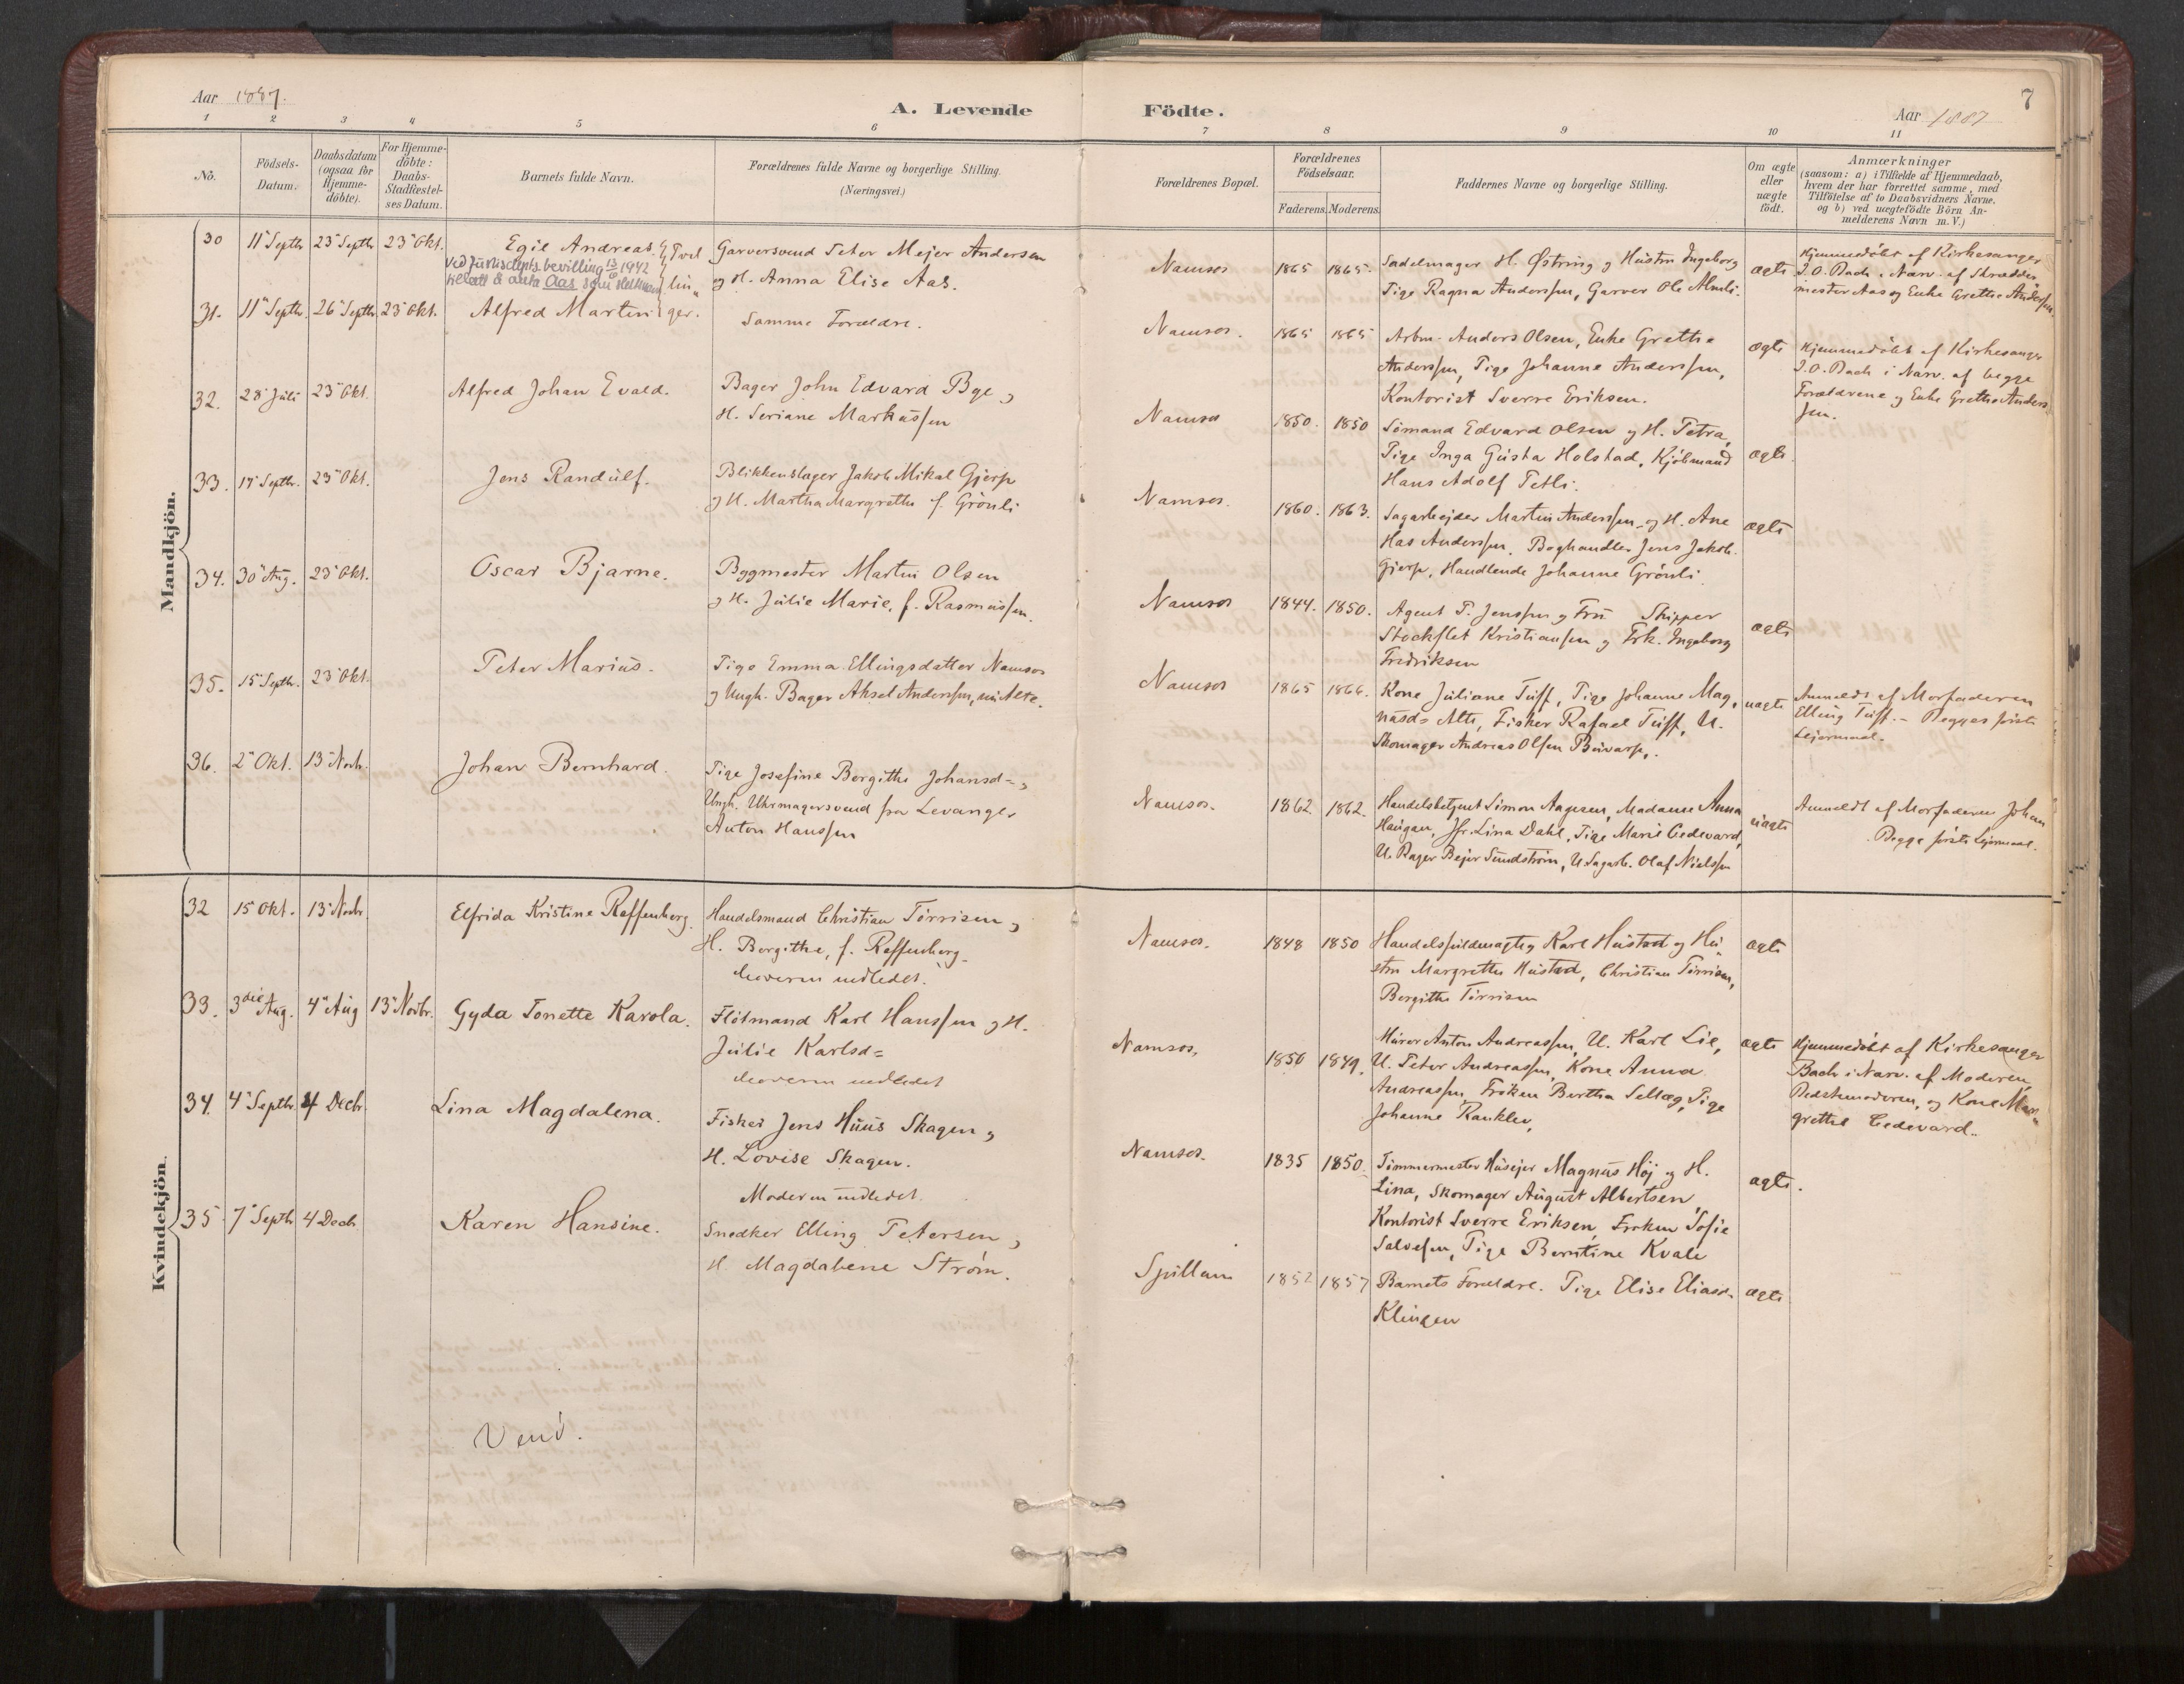 Aar 1887.
A. Levende Födte.
Aar 1887
7
1 2 3 4 5 6 7 8 9 10 11
No.
Födsels-
Datum.
Daabsdatum
(ogsaa for
Hjemme-
döbte).
For Hjemme-
döbte:
Daabs-
Stadfæstel-
ses Datum.
Barnets fulde Navn.
Forældrenes fulde Navne og borgerlige Stilling.
(Næringsvei.)
Forældrenes Bopæl.
Forældrenes
Födselsaar.
Faderens. Moderens.
Faddernes Navne og borgerlige Stilling.
Om ægte
eller
uægte
födt.
Anmærkninger
(saasom: a) i Tilfælde af Hjemmedaab,
hvem der har forrettet samme, med
Tilföielse af to Daabsvidners Navne.
og b) ved uægtefödte Börn An-
melderens Navn m. V.)
Mandkjön.
30 11" Septbr 23" Septbr 23" Okt. Egil Andreas. Tvil
Ved Justisdepts. bevilling 13/6 1942
tillatt å anta Aas som slektsnavn
lin„
Garversvend Peter Mejer Andersen
og H. Anna Elise Aas.
Namsos 1865 1865.
Sadelmager H. Østring og Hustru Ingeborg
Pige Ragna Anderssen, Garver Ole Almli.
ægte
Hjemmedöbt af Kirkesanger
J. O. Bach i Nærv. af Skrædder
mester Aas og Enke Grethe Anders
sen.
31. 11" Septbr. 26" Septbr 23" Okt. Alfred Martin ger.
Samme Forældre.
Namsos. 1865 1865
Arbm. Anders Olsen, Enke Grethe
Anderssen, Pige Johanne Anderssen,
Kontorist Sverre Eriksen.
ægte
Hjemmedöbt af Kirkesanger
J. O. Bach i Nærv. af begge
Forældrene og Enke Grethe Anders
sen.
32. 28" Juli 23" Okt. Alfred Johan Evald.
Bager John Edvard Bye og
H. Seriane Markussen
Namsos 1850. 1850
Sömand Edvard Olsen og H. Petra,
Pige Inga Gusta Holstad, Kjöbmand
Hans Adolf Tetli.
ægte.
33. 17" Septbr. 23" Okt. Jens Randulf.
Blikkenslager Jakob Mikal Gjerp
og H. Martha Margrethe f. Grönli
Namsos. 1860. 1863.
Sagarbejder Martin Anderssen og H. Ane
Has Anderssen. Boghandler Jens Jakob
Gjerp, Handlende Johanne Grönli.
ægte
34. 30" Aug. 23" Okt. Oscar Bjarne.
Bygmester Martin Olsen
og H. Julie Marie, f. Rasmussen.
Namsos 1844. 1850.
Agent P. Jenssen og Fru Skipper
Stockflet Kristiansen og Frk. Ingeborg
Fredriksen
ægte
35. 15" Septbr. 23" Okt. Peter Marius.
Pige Emma Ellingsdatter Namsos
og Ungk. Bager Aksel Anderssen,
Namsos 1865 1866.
Kone Juliane Tuff, Pige Johanne Mag,
nusd= Alte, Fisker Rafael Tuff, U.
Skomager Andreas Olsen Buvarp.
uægte
Anmeldt af Morfaderen
Elling Tuff. – Begges förste
Lejermaal.
36. 2" Okt. 13" Novb. Johan Bernhard.
Pige Josefine Bergithe Johansd= og
Ungk. Uhrmagersvend fra Levanger
Anton Hanssen
Namsos. 1862. 1862.
Handelsbetjent Simon Aagesen, Madame Anna
Haugan, Jfr. Lina Dahl, Pige Marie Cedevard,
U. Bager Bejer Sundström, U. Sagarb. Olaf Nielssen
uægte
Anmeldt af Morfaderen Johan
Begge förste Lejermaal.
Kvindekjön.
32 15" Okt. 13" Novbr. Elfrida Kristine Raffenberg.
Handelsmand Christian Törrisen og
H. Bergithe, f. Raffenberg.
Moderen indledet.
Namsos. 1848 1850
Handelsfuldmægtig Karl Hustad og Hu„
stru Margrethe Hustad, Christian Törrisen,
Bergithe Törrisen
ægte
33. 3die Aug. 4" Aug 13" Novbr. Gyda Tonette Karola.
Flötmand Karl Hanssen og H.
Julie Karlsd=
Moderen indledet
Namsos, 1850 1849.
Murer Anton Andreassen, U. Karl Lie,
U. Peter Andreassen, Kone Anna
Andreassen, Fröken Bertha Sellæg, Pige
Johanne Ranklev,
ægte
Hjemmedöbt af Kirkesanger
Bach i Nærv. af Moderen,
Bedstemoderen, og Kone Mar„
grethe Cedevard.
34. 4" Septbr. 4 Decb. Lina Magdalena.
Fisker Jens Huus Skagen og
H. Lovise Skagen.
Moderen indledet.
Namsos. 1835 1850.
Tömmermester Husejer Magnus Höj og H.
Lina, Skomager August Albertsen,
Kontorist Sverre Eriksen, Fröken Sofie
Salvesen, Pige Berntine Kvale
ægte.
35. 7" Septb 4 Decb. Karen Hansine.
Snedker Elling Petersen og
H. Magdalene Ström.
Spillum 1852 1857
Barnets Forældre. Pige Elise Eliasd.
Klingen
ægte
Vend.